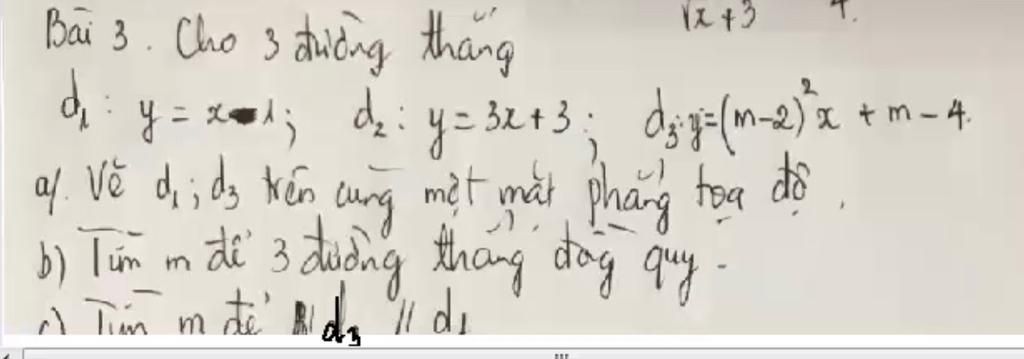 √x + 3 4.
Bài 3. Cho 3 đường thẳng
d₁: y = x - 1; d₂: y = 3x + 3; d₃: y = (m-2)²x + m - 4.
a/. Vẽ d₁; d₃ trên cùng một mặt phẳng tọa độ.
b) Tìm m để 3 đường thẳng đồng quy.
c) Tìm m để d₃ // d₁